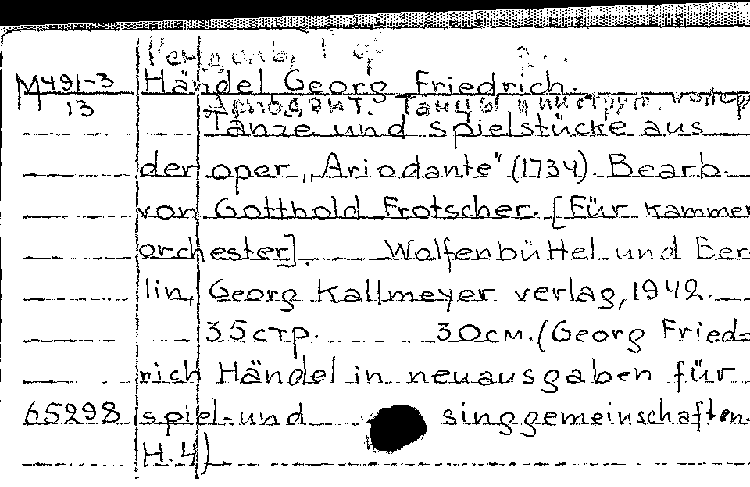 М491-3 Händel Georg Friedrich.
13 Ариодант. Танцы и инструм.
Tänze und spielstücke aus
der oper „Ariodante" (1734). Bearb.
von Gotthold Frotscher. [Für kammer
orchester]. Wolfenbüttel und Ber
lin, Georg Kallmeyer verlag, 1942.
35 стр. 30 см. (Georg Fried=
rich Händel in neuausgaben für
65298 spiel- und singgemeinschaften.
H.4)